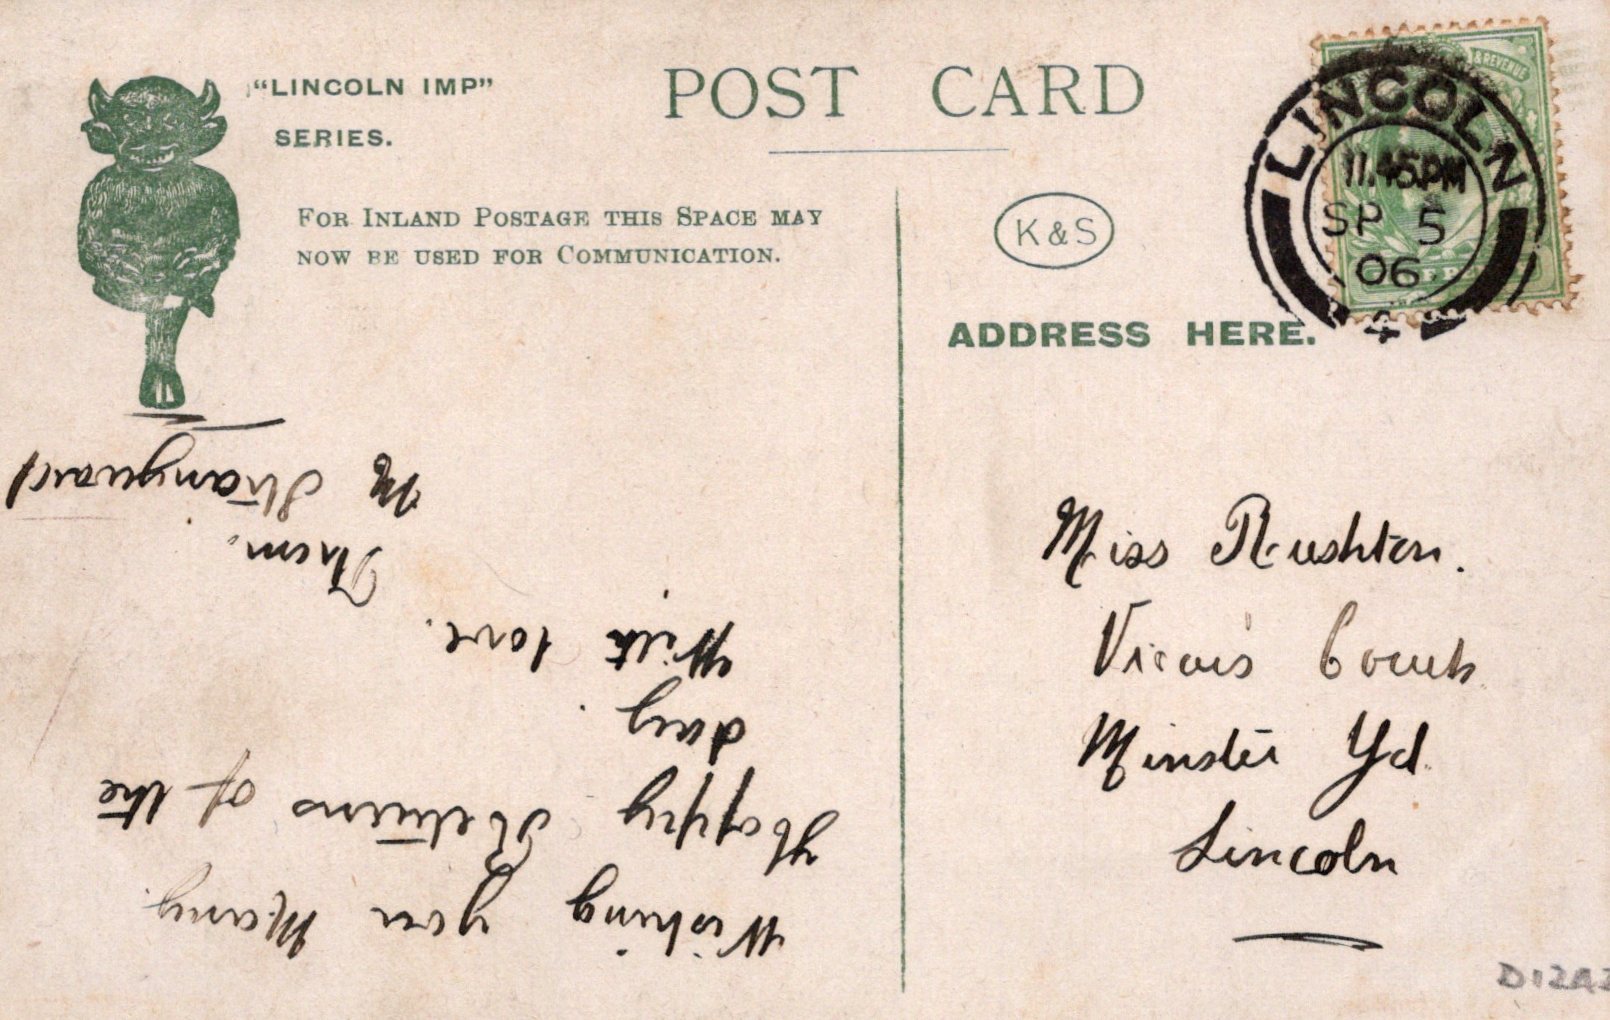 "LINCOLN IMP"
SERIES.
POST CARD
FOR INLAND POSTAGE THIS SPACE MAY
NOW BE USED FOR COMMUNICATION.
K & S
& REVENUE
LINCOLN
11.45PM
SP 5
06
4
ADDRESS HERE.
Wishing you Many
Happy Returns of the
day.
With love.
From.
M Strangward
Miss Rushton.
Vicars Court
Minster Yd.
Lincoln